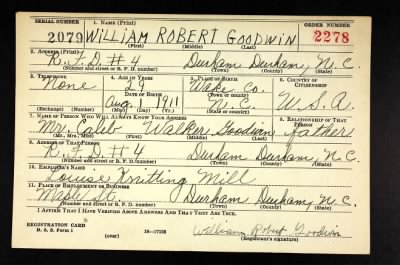 SERIAL NUMBER 1. NAME (Print) ORDER NUMBER
2079 WILLIAM ROBERT GOODWIN 2278
(First) (Middle) (Last)
2. ADDRESS (Print)
R.F.D. #4 Durham Durham, N.C.
(Number and street or R. F. D. number) (Town) (County) (State)
3. TELEPHONE 4. AGE IN YEARS 5. PLACE OF BIRTH 6. COUNTRY OF CITIZENSHIP
None 29 Wake Co.
DATE OF BIRTH (Town or county)
Aug. 1 1911 N.C. U.S.A.
(Exchange) (Number) (Mo.) (Day) (Yr.) (State or country)
7. NAME OF PERSON WHO WILL ALWAYS KNOW YOUR ADDRESS 8. RELATIONSHIP OF THAT PERSON
Mr. Caleb Walker Goodwin father
(Mr., Mrs., Miss) (First) (Middle) (Last)
9. ADDRESS OF THAT PERSON
R.F.D. #4 Durham Durham, N.C.
(Number and street or R. F. D. number) (Town) (County) (State)
10. EMPLOYER'S NAME
Louise Knitting Mill
11. PLACE OF EMPLOYMENT OR BUSINESS
St. Durham Durham, N.C.
(Number and street or R. F. D. number) (Town) (County) (State)
I AFFIRM THAT I HAVE VERIFIED ABOVE ANSWERS AND THAT THEY ARE TRUE.
REGISTRATION CARD
D. S. S. Form 1 (over) 16—17105
William Robert Goodwin
(Registrant's signature)